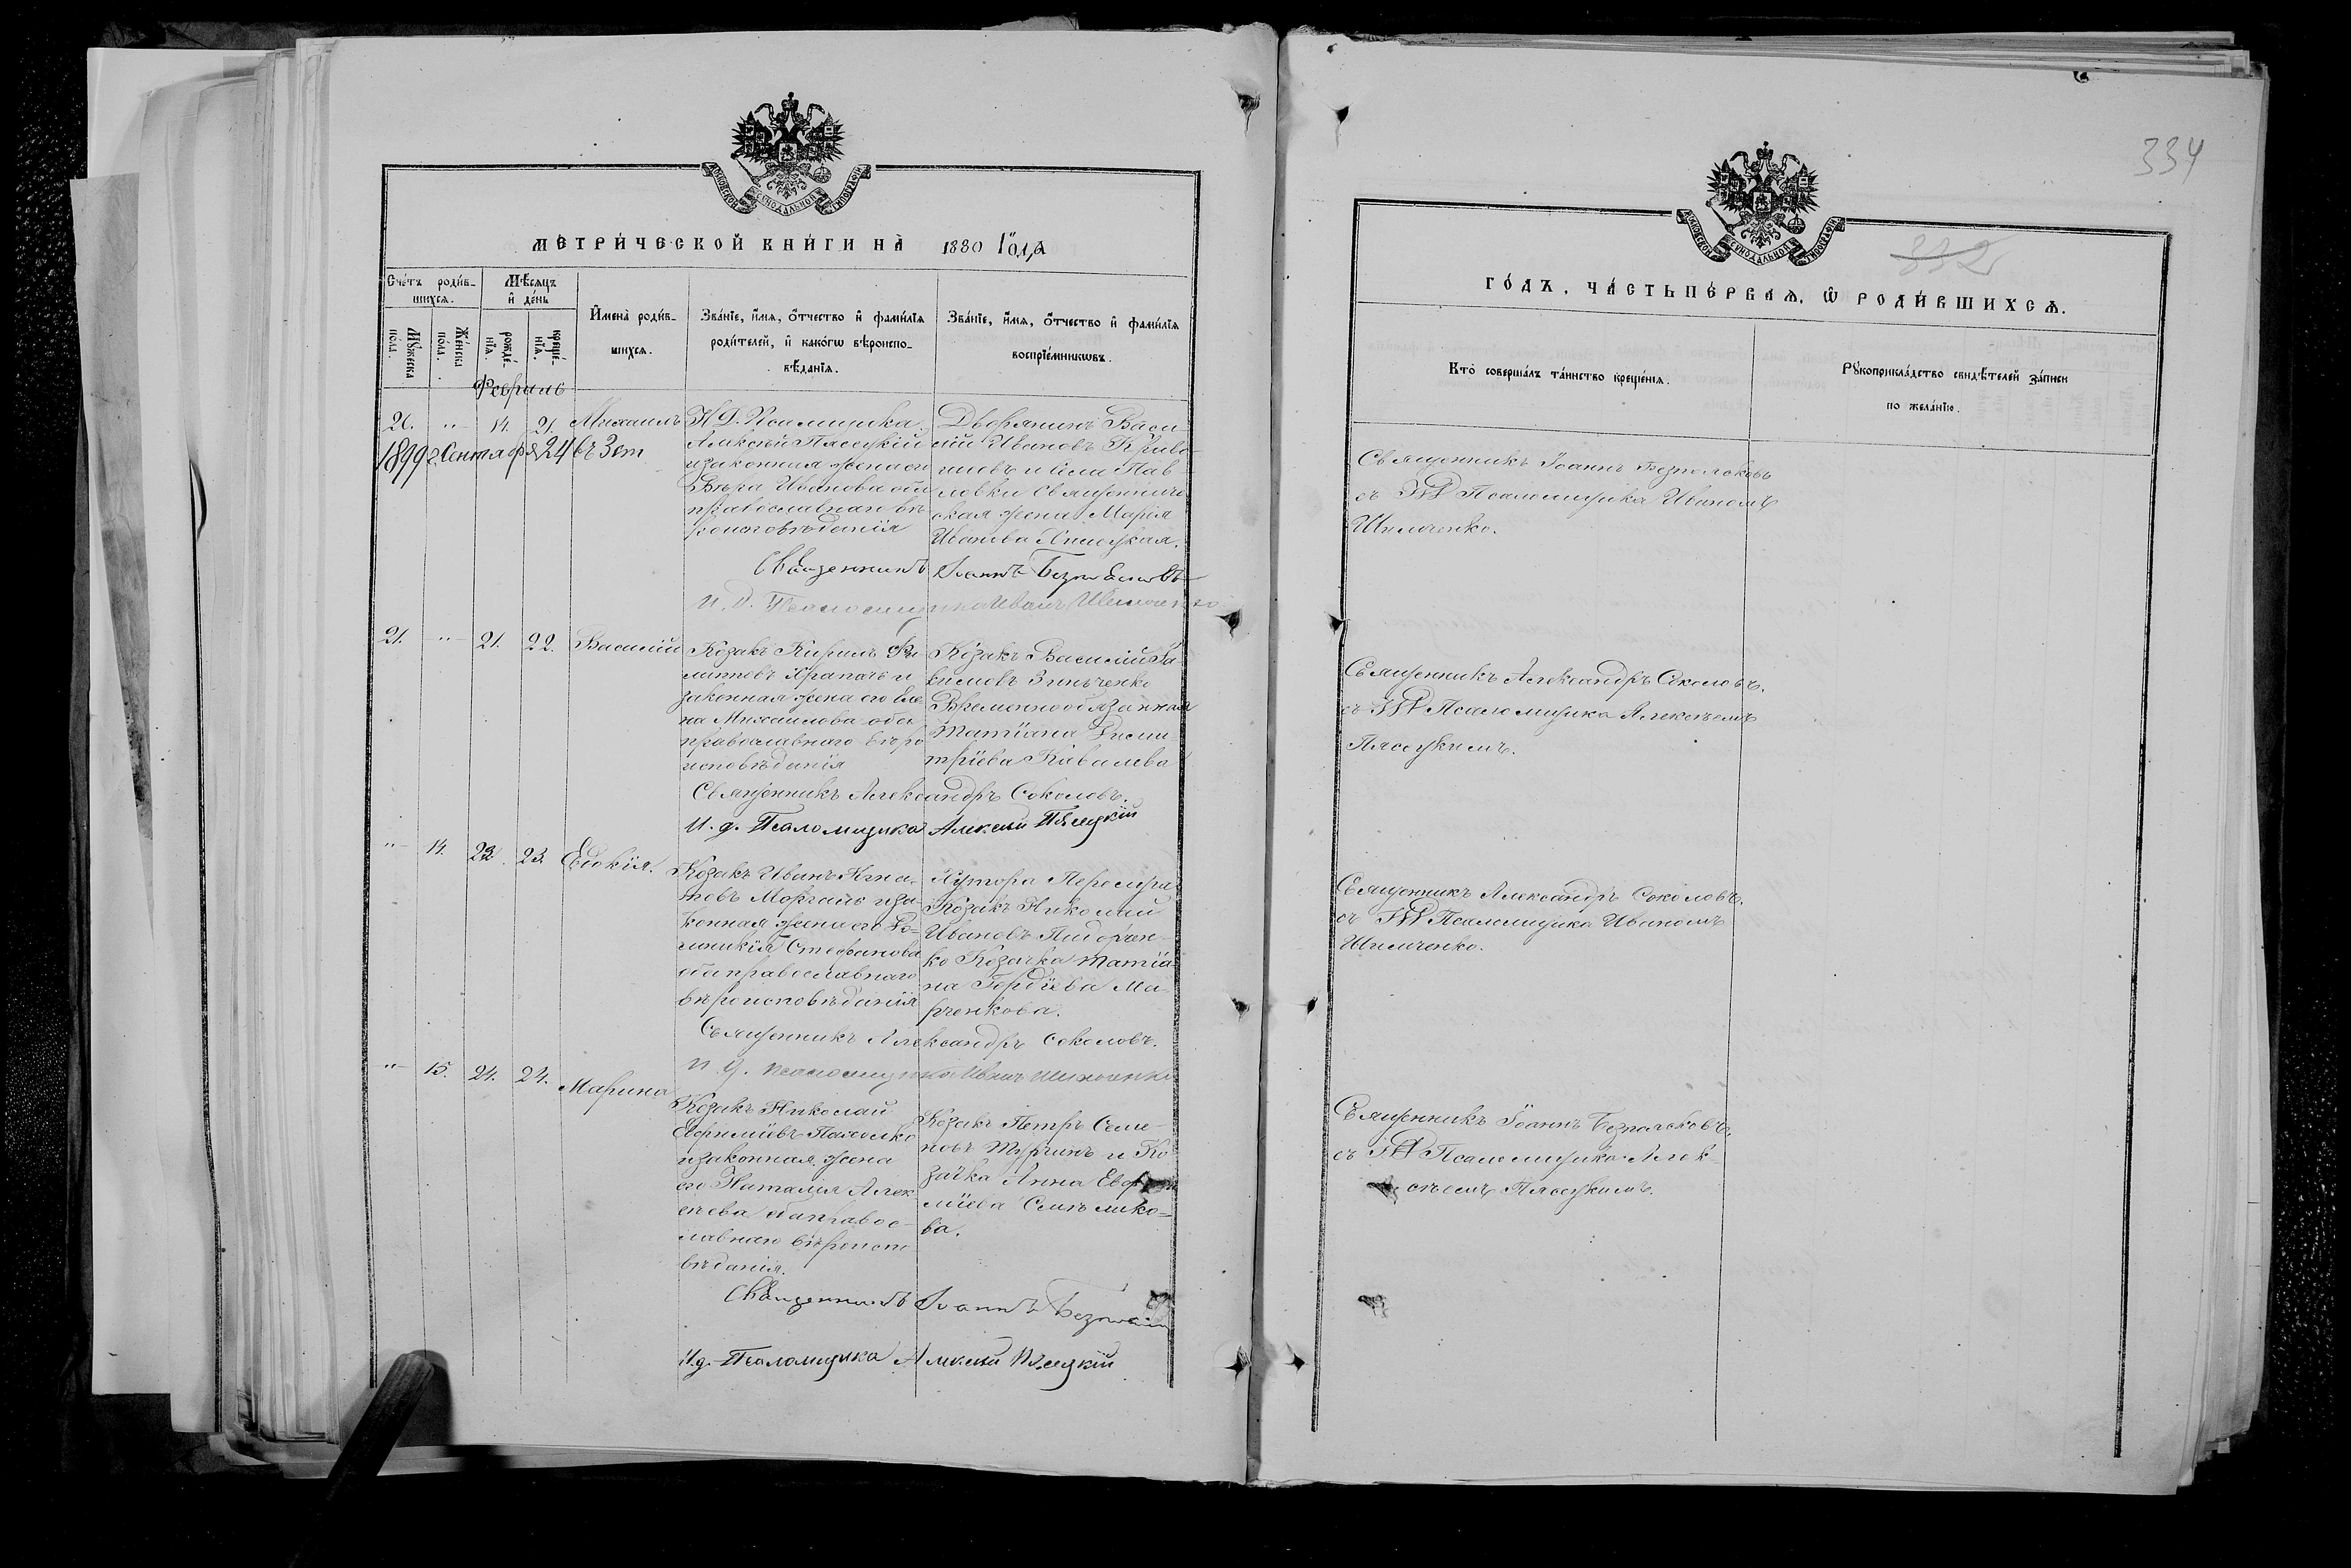 МЕТРИ́ЧЕСКОЙ КНИ́ГИ НА̀ 1880 Года
Сче́тъ роди́в-
шихся.
Мѣ́сяцъ
и̂ де́нь
Му́жеска
по́ла.
Же́нска
по́ла.
рожде́-
нїя.
креще́-
нїя.
И̂мена̀ роди́в-
шихся.
Зва́нїе, и́мя, о́тчество и̂ фами́лїя
роди́телей, и̂ како́гѡ вѣроиспо-
вѣ́данїя.
Зва́нїе, и́мя, о́тчество и̂ фами́лїя
воспрїе́мникѡвъ.
Февраль
20. " 14. 21. Михаилъ
1899 г. Сентября 24 въ Зет
И. Д. Псаломщика
Алексѣй Пясецкій
и законная жена его
Вѣра Иванова оба
православнаго вѣ
роисповѣданія
Дворянинъ Васи
лій Ивановъ
и села Пав
ловки священниче
ская жена Марія
Иванова
Священникъ Іоаннъ Безпояcковъ
И. д. Псаломщика Иванъ Шимченко
21. " 21. 22. Василій
Козакъ Кирилъ Фи
липповъ Храпачъ и
законная жена его Еле
на Михаилова оба
православнаго вѣро
исповѣданія
Козакъ Василій
Зинченко
Временнообязанная
Татіана Дими
тріева Ковалева
Священникъ Александръ Соколовъ.
И. д. Псаломщика Алексѣй Пясецкій
" 14. 22. 23. Евдокія.
Козакъ Иванъ Игна
товъ Моргачъ и за
конная жена его До-
мникія Стефанова
оба православнаго
вѣроисповѣданія
Хутора
Козакъ Николай
Ивановъ Пидорен
ко Козачка Татіа
на Гордіева Ма
рченкова.
Священникъ Александръ Соколовъ.
И. д. Псаломщика Иванъ Шимченко
" 15. 24. 24. Марина
Козакъ Николай
Евфиміевъ
и законная жена
его Наталія Алек
сѣева оба правос-
лавнаго вѣроиспо
вѣданія.
Козакъ Петръ Семе-
новъ Турчинъ и Ко
зачка Анна Евфи
міева
ва.
Священникъ Іоаннъ
И. д. Псаломщика Алексѣй Пясецкій
334
332
ГО́ДЪ, ЧА́СТЬ ПЕ́РВАЯ, Ѽ РОДИ́ВШИХСЯ.
Кто̀ соверша́лъ та́инство креще́нїя.
Рꙋкоприкла́дство свидѣ́телей за́писи
по жела́нїю.
Священникъ Іоаннъ Безпоясковъ
съ И Д Псаломщика Иваномъ
Шимченко.
Священникъ Александръ Соколовъ.
съ И Д Псаломщика Алексѣемъ
Пясецкимъ.
Священникъ Александръ Соколовъ.
съ И Д Псаломщика Иваномъ
Шимченко.
Священникъ Іоаннъ Безпоясковъ.
съ И Д Псаломщика Алек-
сѣемъ Пясецкимъ.